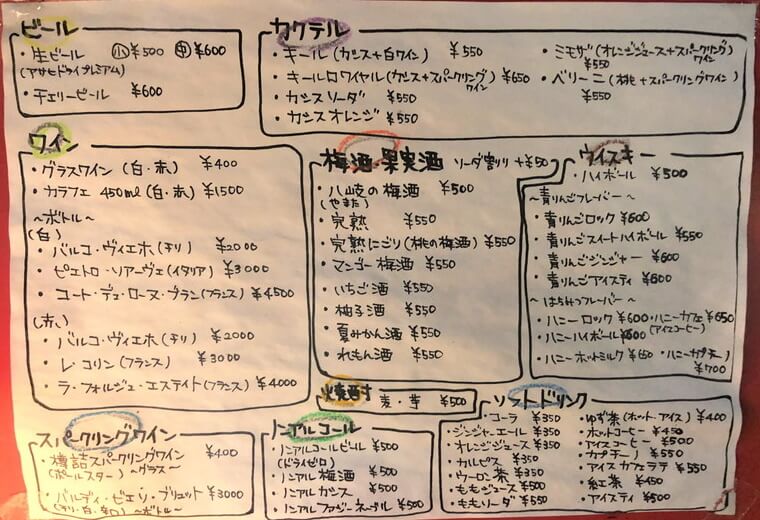 ビール
・生ビール 小 ¥500 中 ¥600
(アサヒドライプレミアム)
・チェリービール ¥600
カクテル
・キール (カシス+白ワイン) ¥550
・キールロワイヤル (カシス+スパークリングワイン) ¥650
・カシスソーダ ¥550
・カシスオレンジ ¥550
・ミモザ (オレンジジュース+スパークリングワイン) ¥550
・ベリーニ (桃+スパークリングワイン) ¥550
ワイン
・グラスワイン (白・赤) ¥400
・カラフェ 450ml (白・赤) ¥1500
〜ボトル〜
(白)
・バルコ・ヴィエホ (チリ) ¥2000
・ピエトロ・ソアーヴェ (イタリア) ¥3000
・コート・デュ・ローヌ・ブラン (フランス) ¥4,500
(赤)
・バルコ・ヴィエホ (チリ) ¥2000
・レ・コリン (フランス) ¥3000
・ラ・フォルジュ・エステイト (フランス) ¥4000
梅酒 果実酒 ソーダ割り +¥50
・八岐の梅酒 ¥500
(やまた)
・完熟 ¥550
・完熟にごり (桃の梅酒) ¥550
・マンゴー梅酒 ¥550
・いちご酒 ¥550
・柚子酒 ¥550
・夏みかん酒 ¥550
・れもん酒 ¥550
ウイスキー
・ハイボール ¥500
〜青りんごフレーバー〜
・青りんごロック ¥600
・青りんごスイートハイボール ¥550
・青りんごジンジャー ¥600
・青りんごアイスティ ¥600
〜はちみつフレーバー〜
・ハニーロック ¥600 ・ハニーカフェ ¥650
(アイスコーヒー)
・ハニーハイボール ¥600
・ハニーホットミルク ¥650 ・ハニーカプチーノ ¥700
焼酎 麦・芋 ¥500
スパークリングワイン
・樽詰スパークリングワイン ¥400
(ポールスター) 〜グラス〜
・バルディ・ビエソ・ブリュット ¥3000
(チリ・白・辛口) 〜ボトル〜
ノンアルコール
・ノンアルコールビール ¥500
(ドライゼロ)
・ノンアル梅酒 ¥500
・ノンアルカシス ¥500
・ノンアルファジーネーブル ¥500
ソフトドリンク
・コーラ ¥350
・ジンジャーエール ¥350
・オレンジジュース ¥350
・カルピス ¥350
・ウーロン茶 ¥350
・ももジュース ¥500
・ももソーダ ¥550
・ゆず茶 (ホット・アイス) ¥400
・ホットコーヒー ¥450
・アイスコーヒー ¥500
・カプチーノ ¥550
・アイスカフェラテ ¥550
・紅茶 ¥450
・アイスティ ¥500